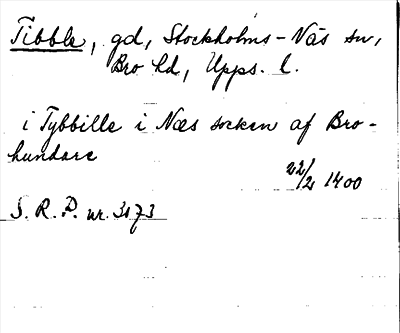 Tibble, gd, Stockholms-Näs sn,
Bro hd, Upps. l.
i Tybbille i Næs socken af Bro-
hundare
22/2 1400
S. R. P. nr. 3173